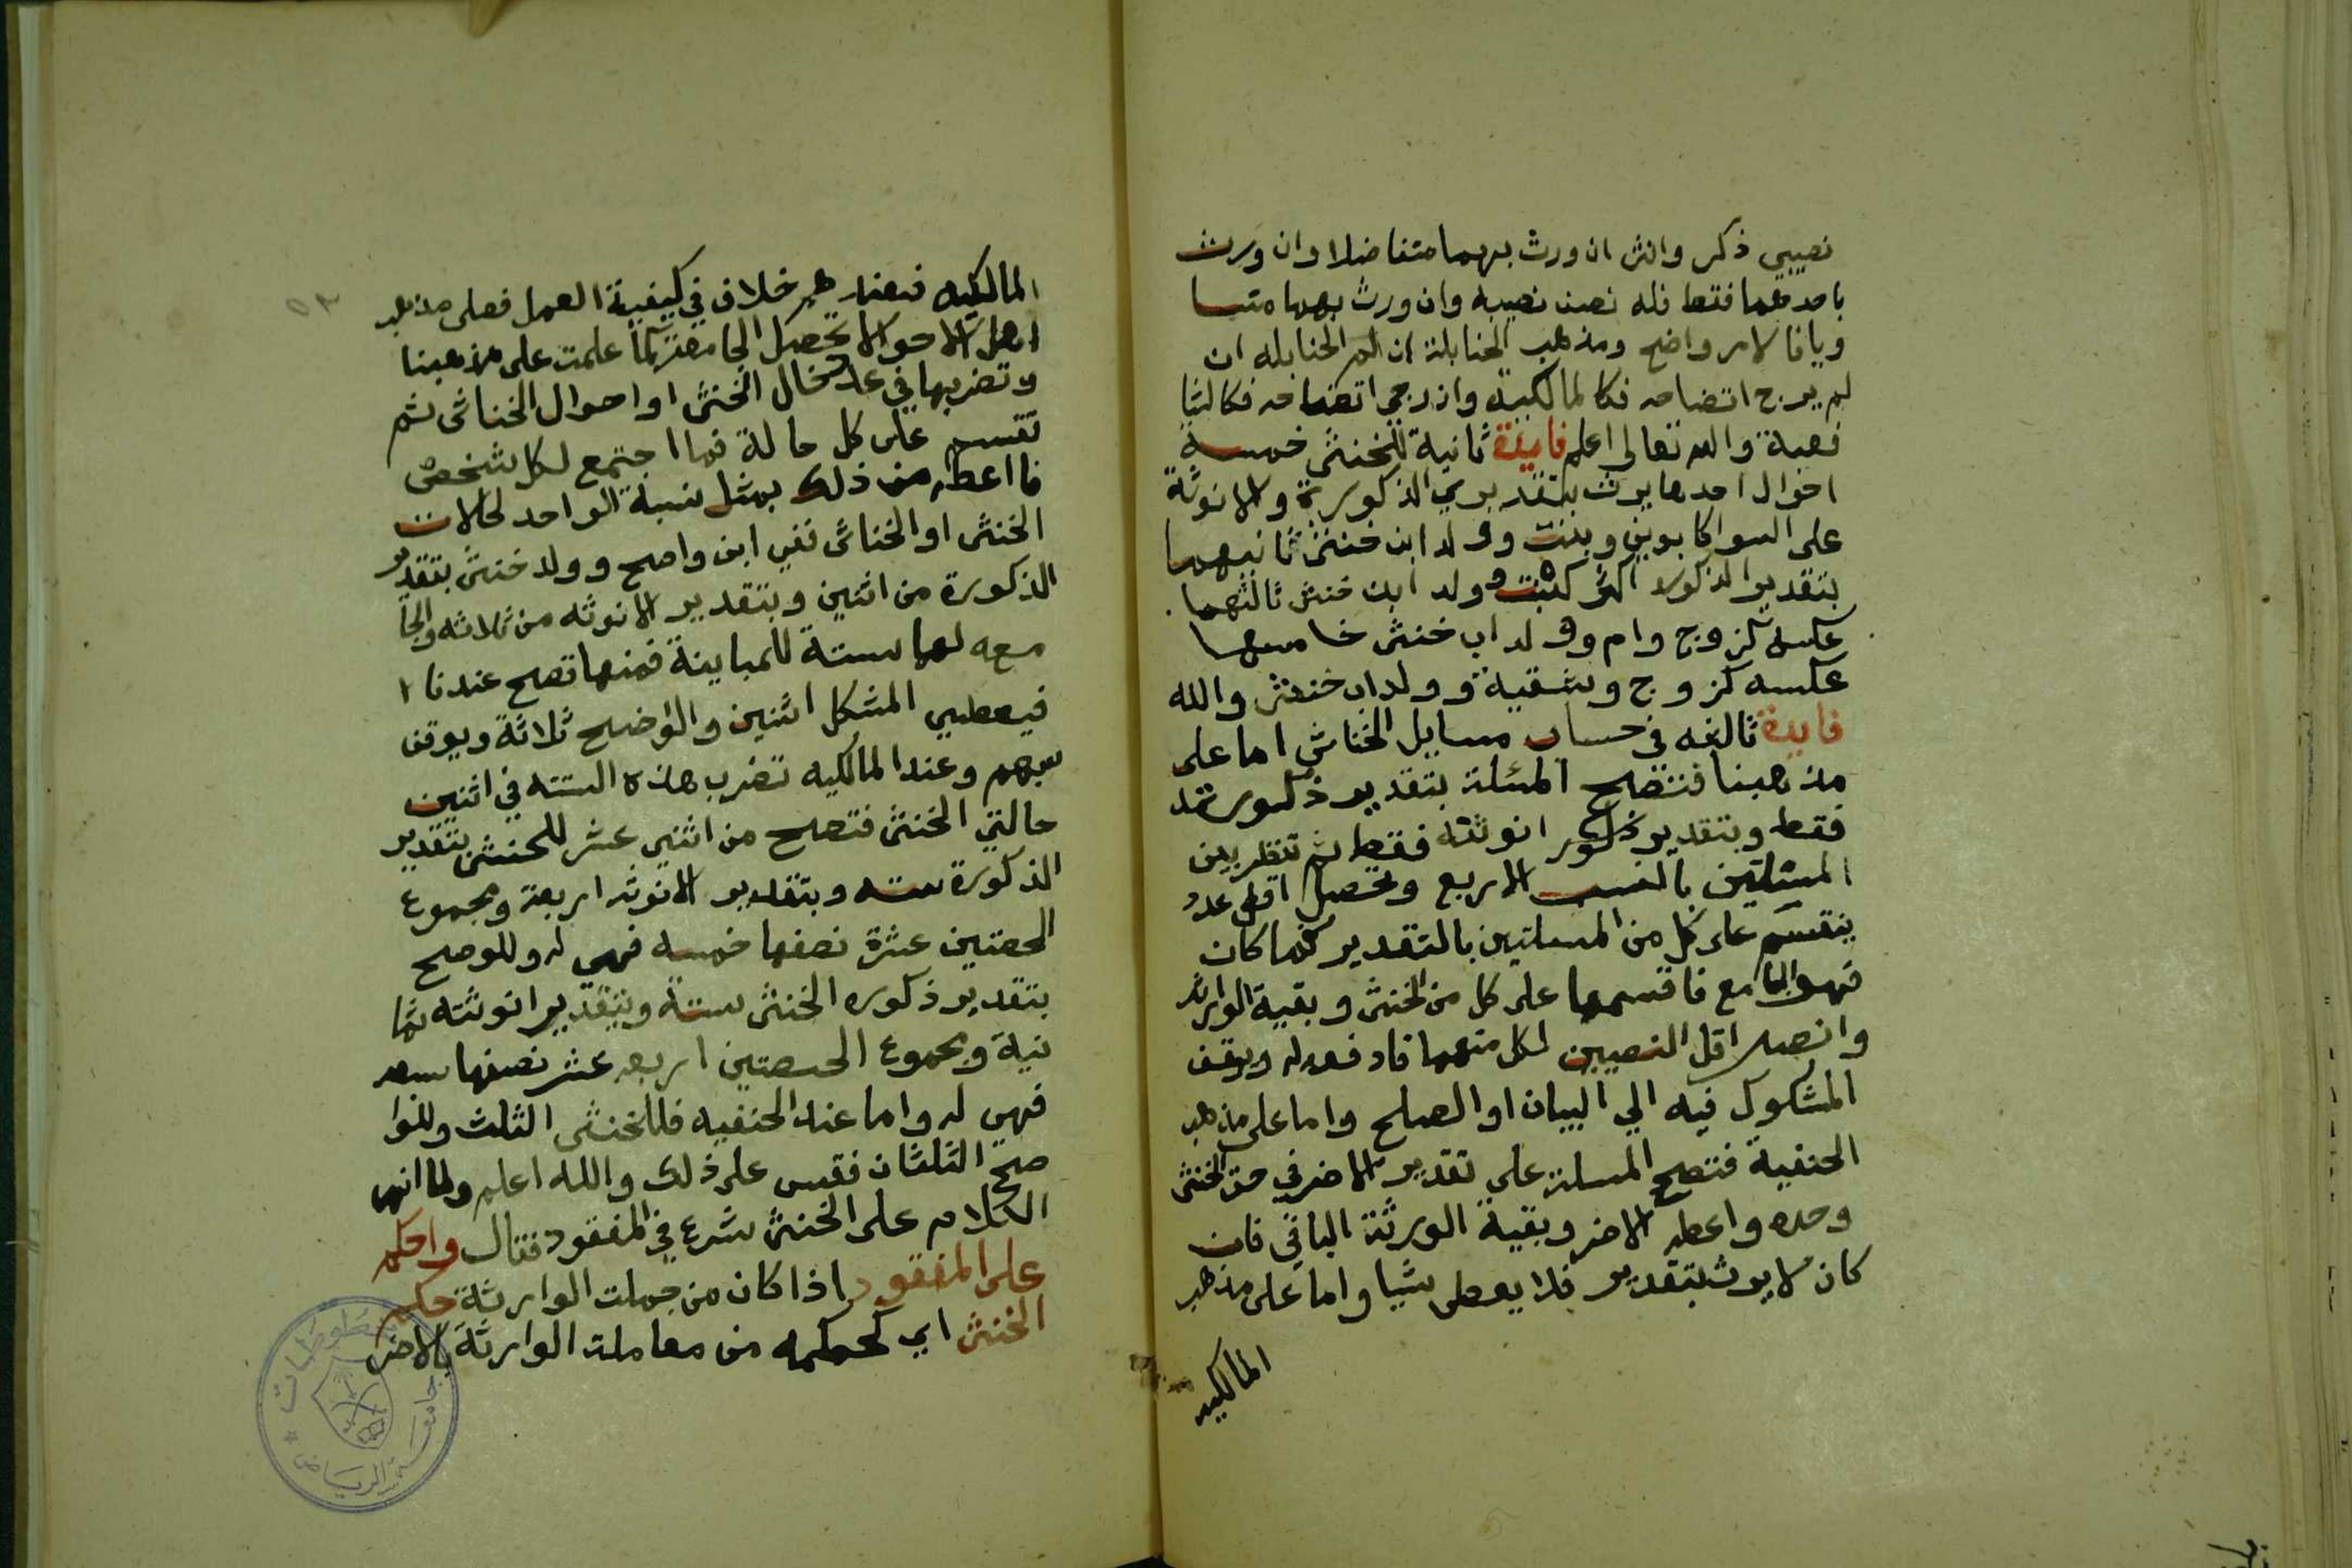 نصيبي ذكر وانثى ان ورث بهما متفاضلا وان ورث
باحدهما فقط فله نصف نصيبه وان ورث بهما متسا
ويا فالامر واضح ومذهب الحنابلة ان الحنابله ان
لم يرج اتضاحه فكالمالكية وان رجي اتضاحه فكالشا
فعية والله تعالى اعلم فايدة ثانية للخنثى خمسة
احوال احدها يرث بتقديري الذكورة والانوثة
على السوا كابوين وبنت وولد ابن خنثى ثانيهما
بتقدير الذكوره اكثر كبنت وولد ابن خنثى ثالثهما
عكسه كزوج وام وولد اب خنثى خامسها
عكسه كزوج وشقيقة وولد اب خنثى والله
فايدة ثالثه في حساب مسايل الخناثى اما على
مذهبنا فتصح المسئلة بتقدير ذكورته
فقط وبتقدير انوثته فقط ثم تنظر بين
المسئلتين بالنسب الاربع وتحصل اقل عدد
ينقسم على كل من المسلتين بالتقدير فما كان
فهو الجامع فاقسمها على كل من الخنثى وبقية الورثة
وانصر اقل النصيبين لكل منهما فادفعه له ويوقف
المشكوك فيه الي البيان او الصلح واما على مذهب
الحنفية فتصح المسلة على تقدير الاضر في حق الخنثى
وحده واعطه الاضر وبقية الورثة الباقي فان
كان لا يرث بتقدير فلا يعطى شيا واما على مذهب
المالكيه
٥٣
المالكيه فعندهم خلاف في كيفية العمل فعلى مذهب
اهل الاحوال تحصل الجامعة كما علمت على مذهبنا
وتضربها في عدد حال الخنثى او احوال الخناثى ثم
تقسم على كل حالة فما اجتمع لكل شخص
فاعطه من ذلك بمثل نسبة الواحد لحالات
الخنثى او الخناثى ففي ابن واضح وولد خنثى بتقدير
الذكورة من اثنين وبتقدير الانوثه من ثلاثه والجا
معه لهما ستة للمباينة فمنها تصح عندنا
فيعطي المشكل اثنين والواضح ثلاثة ويوقف
سهم وعند المالكيه تضرب هذه الستة في اثنين
حالتي الخنثى فتصح من اثني عشر للخنثى بتقدير
الذكورة سته وبتقدير الانوثه اربعة ومجموع
الحصتين عشرة نصفها خمسه فهي له وللوضح
بتقدير ذكوره الخنثى ستة وبتقدير انوثته ثما
نية ومجموع الحصتين اربعه عشر نصفها سبعه
فهي له واما عند الحنفيه فللخنثى الثلث وللوا
ضح الثلثان فقس على ذلك والله اعلم ولما انهى
الكلام على الخنثى شرع في المفقود فقال واحكم
على المفقود اذا كان من جملت الوارثة حكم
الخنثى اي كحكمه من معاملت الوارثة بالاضر
مخطوطات
جامعة الرياض